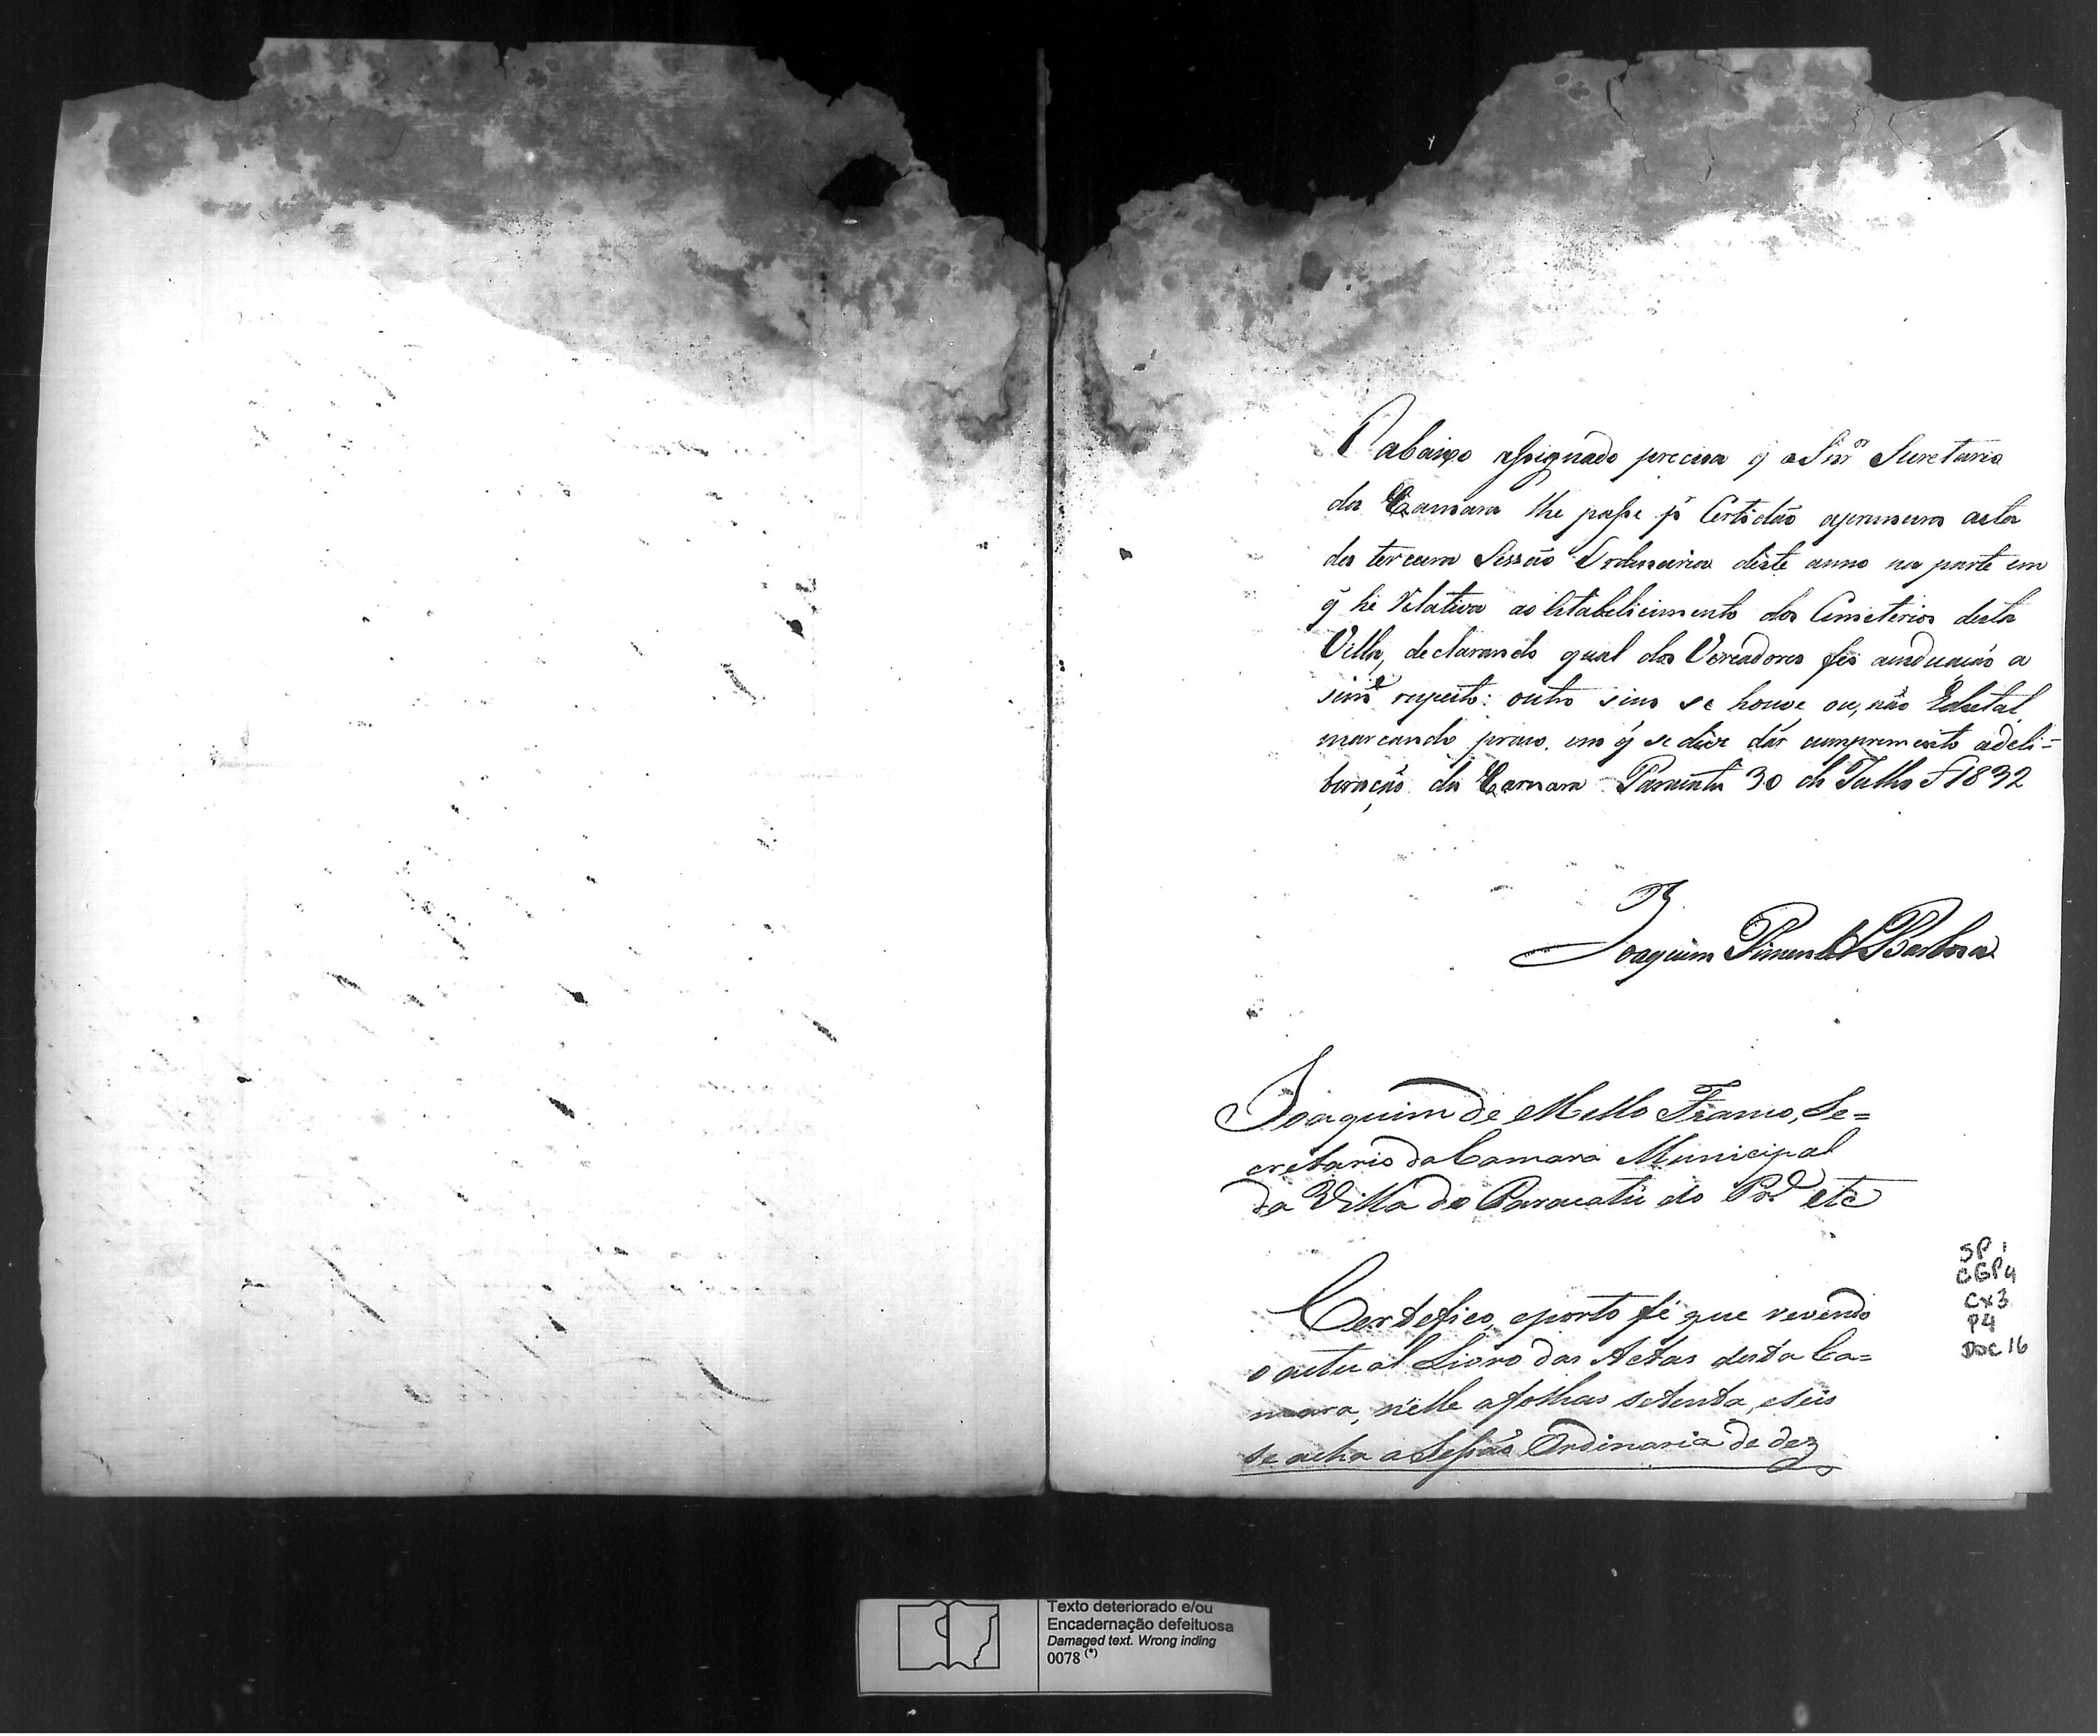 O abaixo assignado precisa q̃ o Snr̃ Secretario
da Camara lhe passe p̃ Certidão a primeira acta
da terceira Sessão Ordinaria deste anno na parte em
q̃ he relativa ao Estabelicimento dos Cemeterios desta
Villa, declarando qual dos Vereadores fes a indicação a
simᵉ respeito: outro sim se houve ou, não Edital
marcando praso em q̃ se devêr dár cumprimento a deli=
beração da Camara Paracatu 30 de Julho de 1832
Joaquim Pimentel Barbosa
Joaquim de Mello Franco, Se=
cretario da Camara Municipal
da Villa de Paracatú do Prᵉ etc
Certefico, e porto fé que revendo
o actual Livro das Actas desta Ca=
mara, nelle a folhas setenta, e seis
se acha a Sessão Ordinaria de dez
SP 1
CGP4
Cx3
P4
Doc 16
Texto deteriorado e/ou
Encadernação defeituosa
Damaged text. Wrong inding
0078 (*)